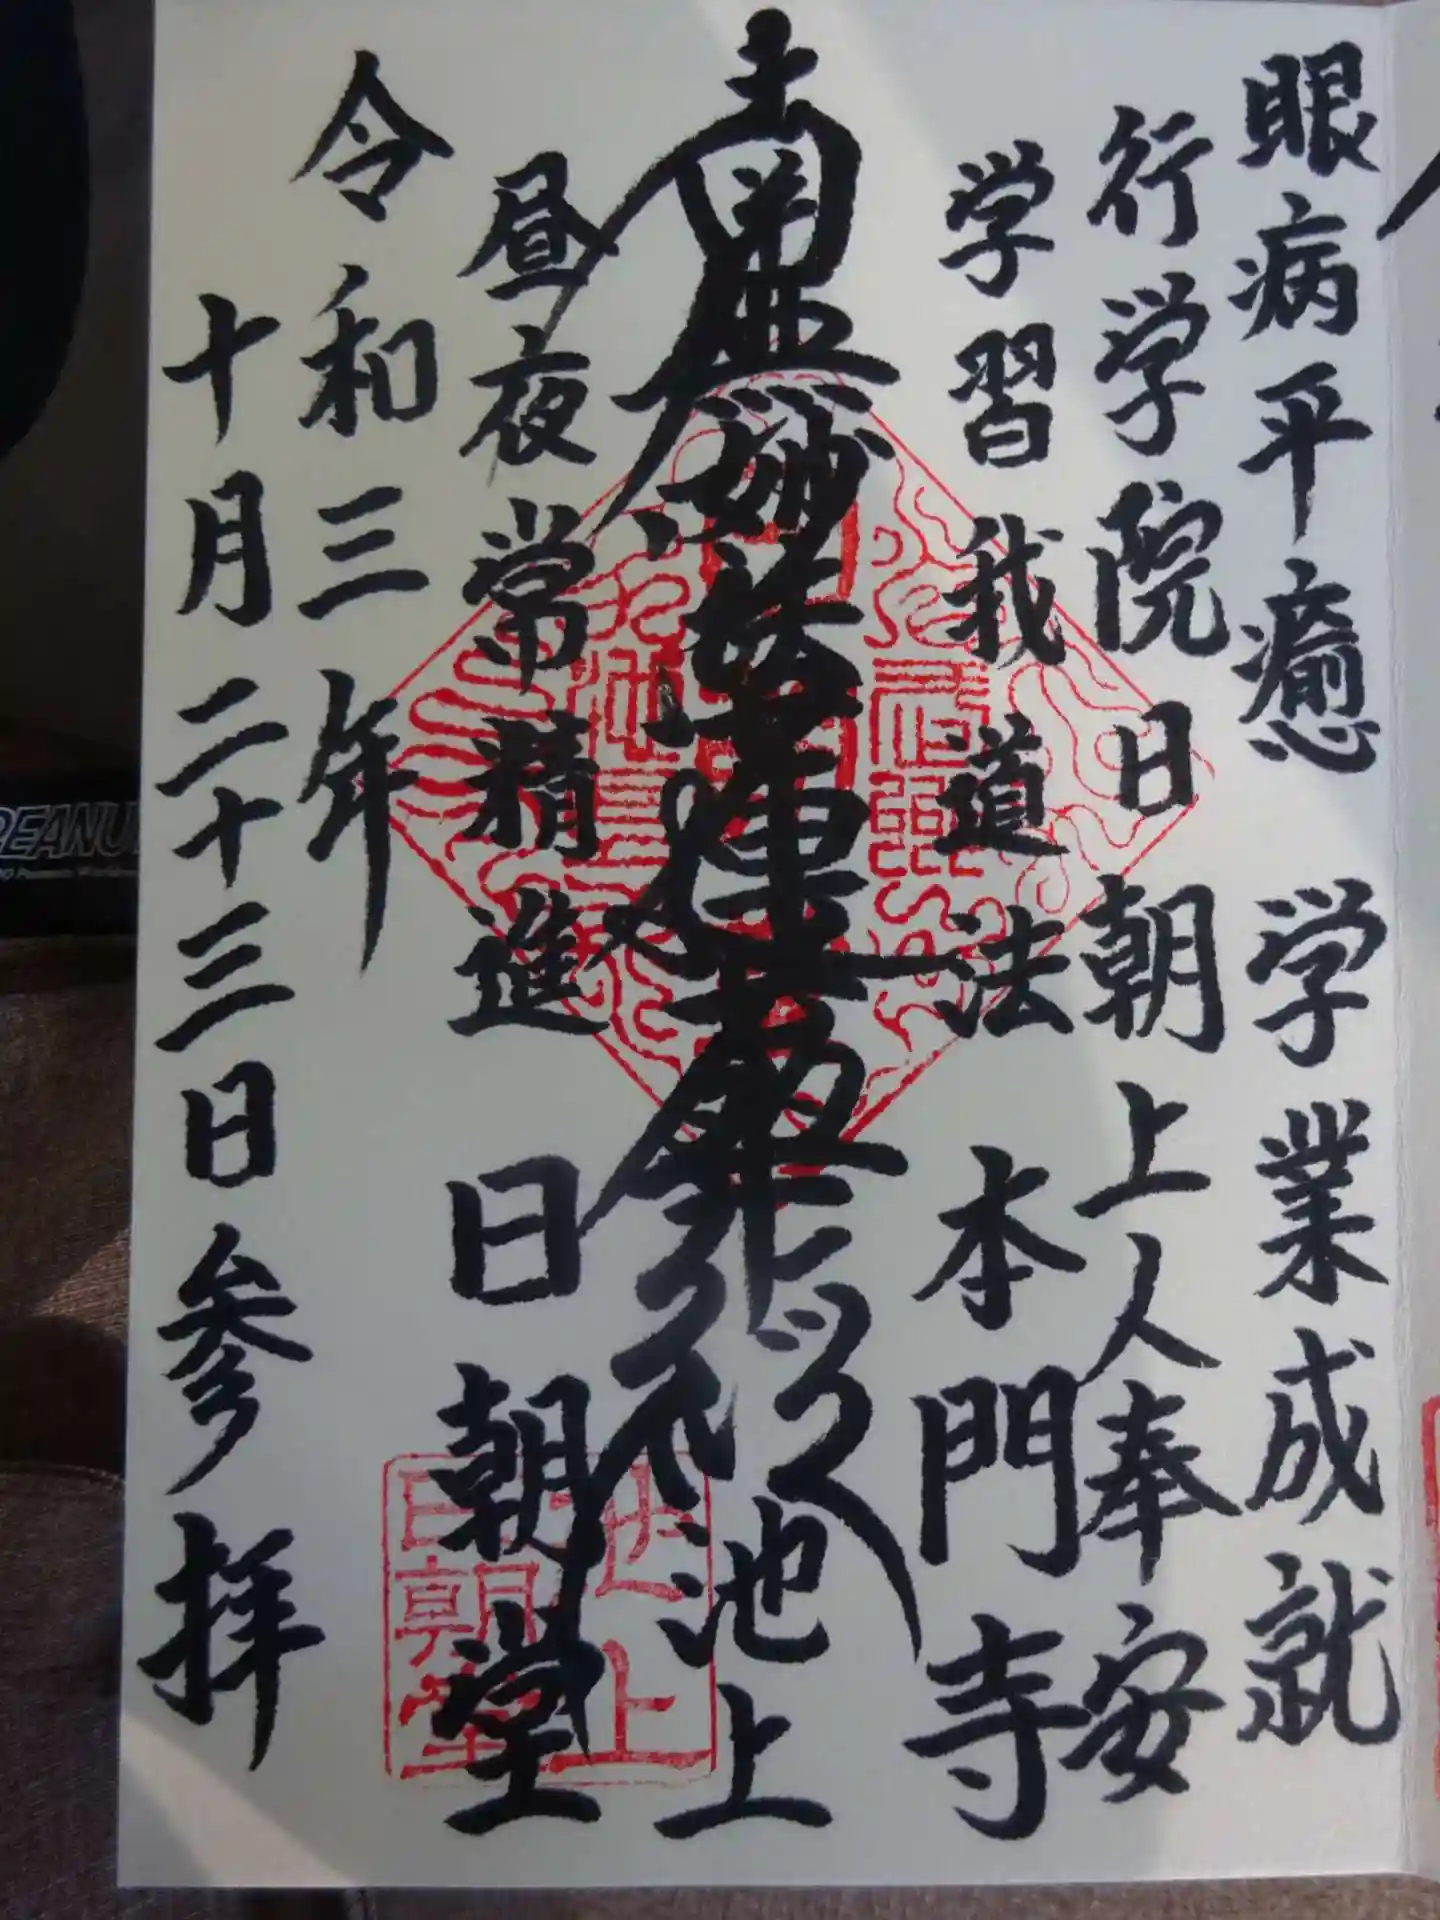 眼病平癒 学業成就
行学院日朝上人奉安
学習我道法 本門寺
南無妙法蓮華経
池上
昼夜常精進 日朝堂
令和三年
十月二十三日参拝
池上
日朝堂